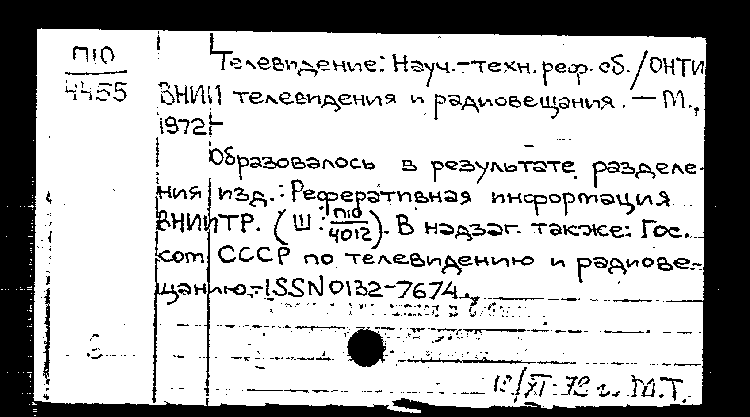 П10
4455
Телевидение: Науч.-техн. реф. сб. / ОНТИ
ВНИИ телевидения и радиовещания. — М.,
1972-
Образовалось в результате разделе-
ния изд.: Реферативная информация
ВНИИТР. (Ш: П10/4012). В надзаг. также: Гос.
ком. СССР по телевидению и радиове-
щанию.-ISSN 0132-7674.
М.Т.